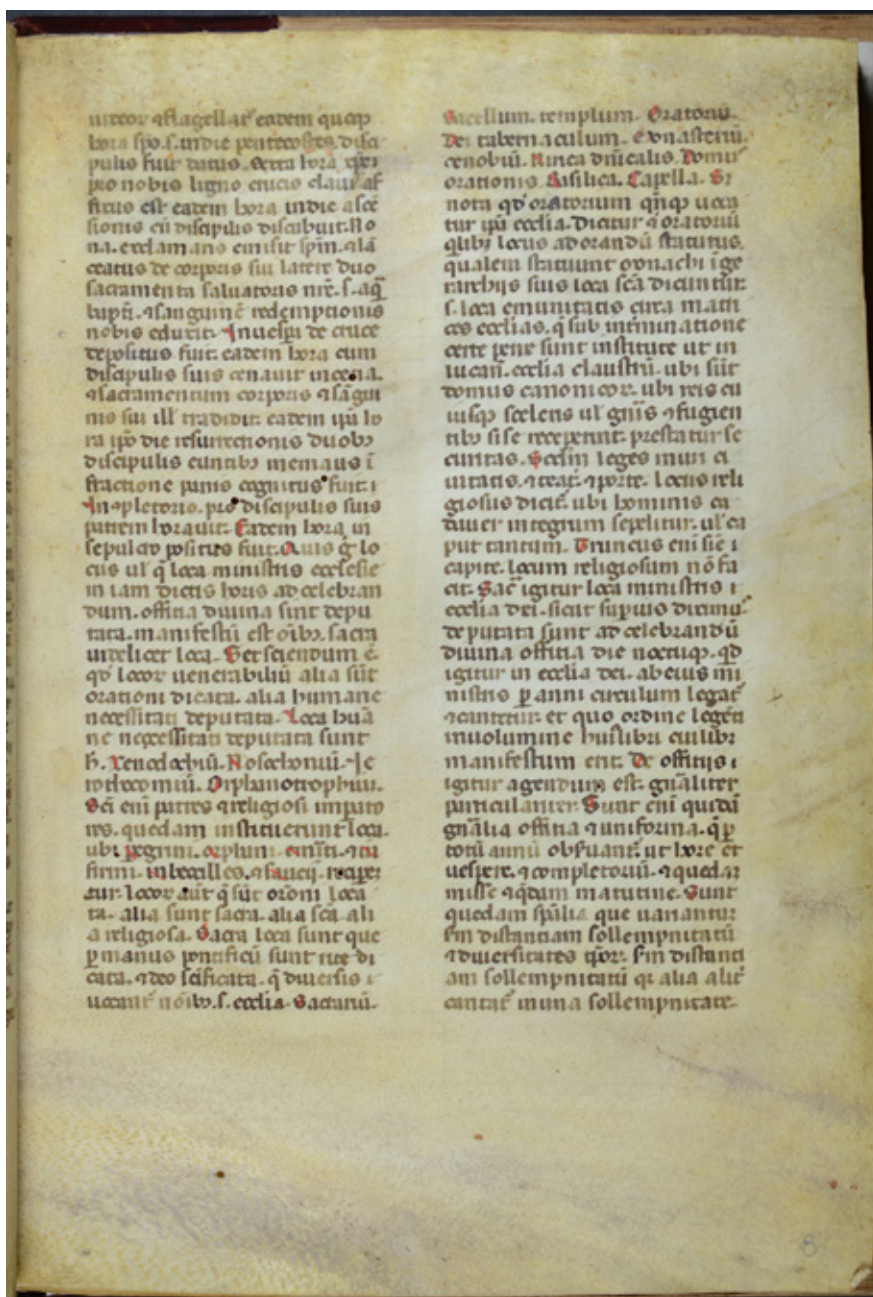 uiteor ⁊ flagellat᷑ eadem quoqꝫ
hora sps̄. s. in die pentecostes disci
pulis fuit datus. Sexta hora xp̄c
pro nobis ligno crucis claui af
fixus est eadem hora in die ascē
sionis cū discipulis discubuit. No
na. exclamans emisit sp̄m. ⁊ lā
ceatus de corporis sui latere duo
sacramenta saluatoris nr̄e. s. aq̄
bapti. ⁊ sanguinē redemptionis
nobis eduxit. In uesp̄a de cruce
depositus fuit. eadem hora cum
discipulis suis cenauit in cena.
⁊ sacramentum corporis ⁊ sāgui
nis sui ill tradidit. eadem ip̄a ho
ra ip̄o die resurrectionis duobꝫ
discipulis euntibꝫ in emaus ī
fractione panis cognitus fuit. i
In ꝯpletorio. pro discipulis suis
patrem horauit. Eadem hora in
sepulcro positus fuit. Quis g̊ lo
cus ul̓ q̄ loca ministris ecclesie
in iam dictis horis ad celebran
dum. offitia diuina sint depu
tata. manifestū est oībꝫ. sacra
uidelicet loca. Set sciendum ē.
qd̓ locoꝝ uenerabiliū alia sūt
orationi dicata. alia humane
necessitati deputata. Loca huā
ne neccessitati deputata sunt
h̄. Xenodochiū. Nosochoniū. Je
rothocomiū. Orphanotrophiuȝ.
Sc̄i eni patres ⁊ religiosi imp̄ato
res. quedam instituerunt loca.
ubi pegrini. orphani. ⁊ in
firmi. inbecilles. ⁊ saucij. reciper̄
tur. locoꝝ aut̄ q̄ sūt or̄oni dica
ta. alia sunt sacra. alia sc̄a. ali
a religiosa. Sacra loca sunt que
ꝑ manus pontificū sunt rite di
cata. ⁊ deo sc̄ificata. q̄ diuersis i
uocant᷑ nōibꝫ. s. ecclia. Sacrariū.
Sacellum. templum. Oratoriū
Dei tabernaculum. Monasteriū.
cenobiū. diūicalis. Domus
orationis. Basilica. Capella. Et
nota qd̓ oratorium qn̄qꝫ uoca
tur ip̄a ecclia. Dicitur ⁊ oratoriū
qlibꝫ locus ad orandū statutus.
qualem statuunt monachi ī ge
rarchijs suis loca sc̄a dicuntur.
s. loca emunitatis circa matri
ces ecclias. q̄ sub int̓minatione
certe pene sunt institute ut in
tucan̄. ecclia claustrū. ubi sūt
domus canonicoꝝ. ubi reis cu
iusqꝫ sceleris ul̓ gn̄is ⁊ fugien
tibꝫ si se receperint. prestatur se
curitas. Scdm leges muri ci
uitatis. ⁊ ⁊ porte. Locus reli
giosus dicit᷑. ubi hominis ca
dauer integrum sepelitur. ul̓ ca
put tantum. Truncus eni sine
capite. locum religiosum nō fa
cit. Sac̄ igitur loca ministris i
ecclia dei. sicut sup̄ius diximus
deputata sunt ad celebrandū
diuina offitia die noctuqꝫ. qd̓
igitur in ecclia dei. ab eius mi
nistris ꝑ anni circulum legat᷑
⁊ cantetur. et quo ordine legēti
in uolumine huīlibri cuilibꝫ
manifestum erit. De offitijs i
igitur agendum est. gn̄aliter
particulariter. Sunt eni quidā
gn̄alia offitia ⁊ uniforma. q̄ ꝑ
totū annū obs̓uant᷑. ut hore et
uespere. ⁊ completoriū. ⁊ quedaȝ
misse ⁊ q̄dam matutine. Sunt
quedam sp̄alia que uariantur
sm̄ distantiam sollempnitatū
⁊ diuersitates tp̄oꝝ. sm̄ distanti
am sollempnitatū qꝛ alia alit᷑
cantat᷑ in una sollempnitate.
8